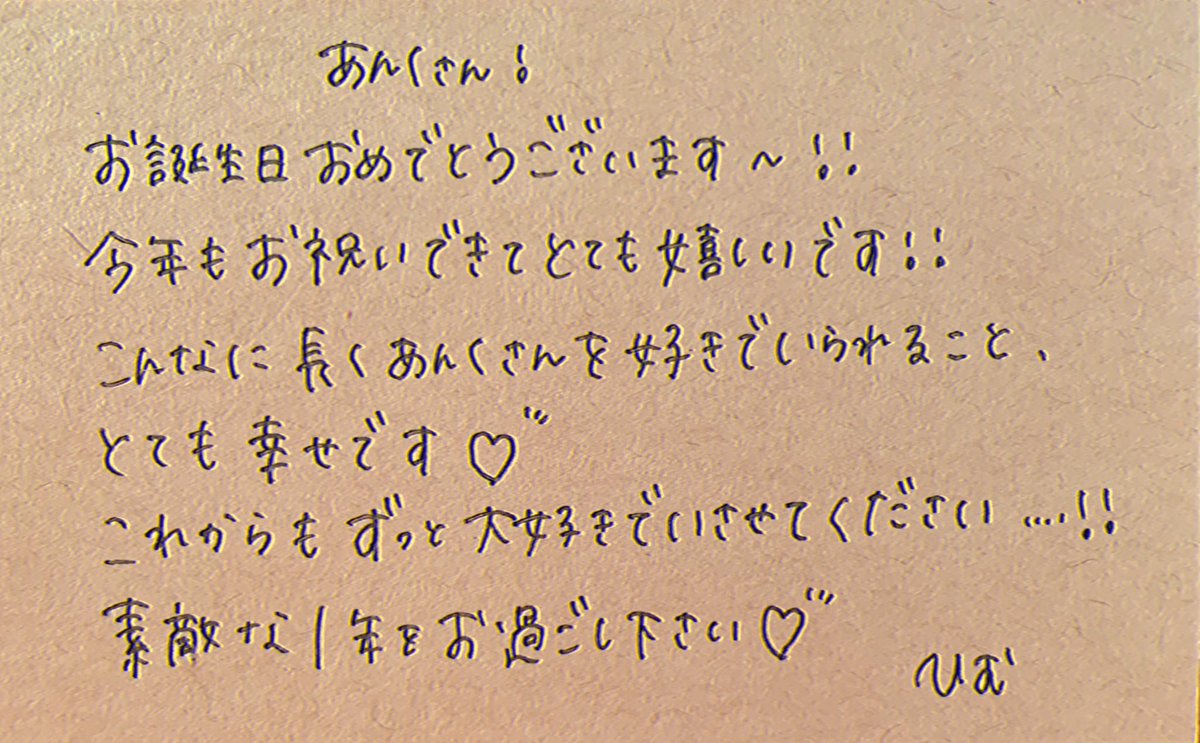 あんくさん!
お誕生日おめでとうございます～!!
今年もお祝いできてとても嬉しいです!!
こんなに長くあんくさんを好きでいられること、
とても幸せです♡"
これからもずっと大好きでいさせてください....!!
素敵な1年をお過ごし下さい♡"
ひむ